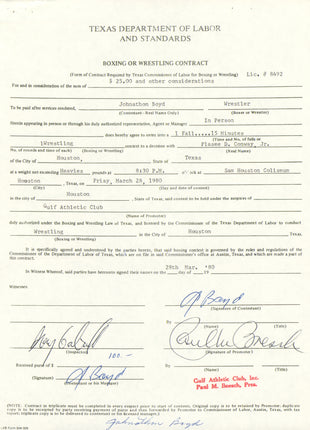 TEXAS DEPARTMENT OF LABOR
AND STANDARDS
BOXING OR WRESTLING CONTRACT
(Form of Contract Required by Texas Commissioner of Labor for Boxing or Wrestling) Lic. # 8692
$ 25.00 and other considerations
For and in consideration of the sum of
To be paid after services rendered, Johnathon Boyd Wrestler
(Contestant - Real Name Only) (Boxer or Wrestler)
Herein appearing in person or through his duly authorized representative, Agent or Manager In Person
does hereby agree to enter into a 1 Fall...15 Minutes
1Wrestling contest to a decision with
No. of rounds and time of each) (Boxing or Wrestling) (Real Name)
of the City of Houston, State of Texas
at a weight not exceeding Heavies pounds at 8:30 P.M. o'clock at Sam Houston Coliseum
Houston, Texas, on Friay, March 28, 1980
(City) (Day and date of contest)
in the city of Houston, State of Texas; and contest to be held under the auspices of
Gulf Athletic Club
(Name of Promoter)
duly authorized under the Boxing and Wrestling Law of Texas, and licensed by the Commissioner of the Texas Department of Labor to conduct
Wrestling in the City of Houston, Texas.
(Boxing or Wrestling)
It is specifically agreed and understood by the parties herein, that said boxing contest is governed by the rules and regulations of the Commissioner of the Department of Labor of Texas, which are on file in said Commissioner's office at Austin, Texas, and which are made a part of this contract.
In Witness Whereof, said parties have hereunto signed their names on the 28th Mar. '80 day of 19
Witnesses:
J Boyd
(Signature of Contestant)
By
(Name) (Title)
(Inspector) (Name) (Title)
Received purse of $ 100.-
(Signature) J Boyd
(Contestant or his Manager)
Gulf Athletic Club, Inc.
Paul M. Boesch, Pres.
(NOTE: Contract in triplicate must be completed in every respect prior to start of contest. Original contract to be retained by Promoter; duplicate copy is to be accepted by party receiving payment of purse and then forwarded by Promoter to Commissioner of Labor, Austin, Texas, with tax report; triplicate copy to be retained by contestant.)
Johnathon Boyd